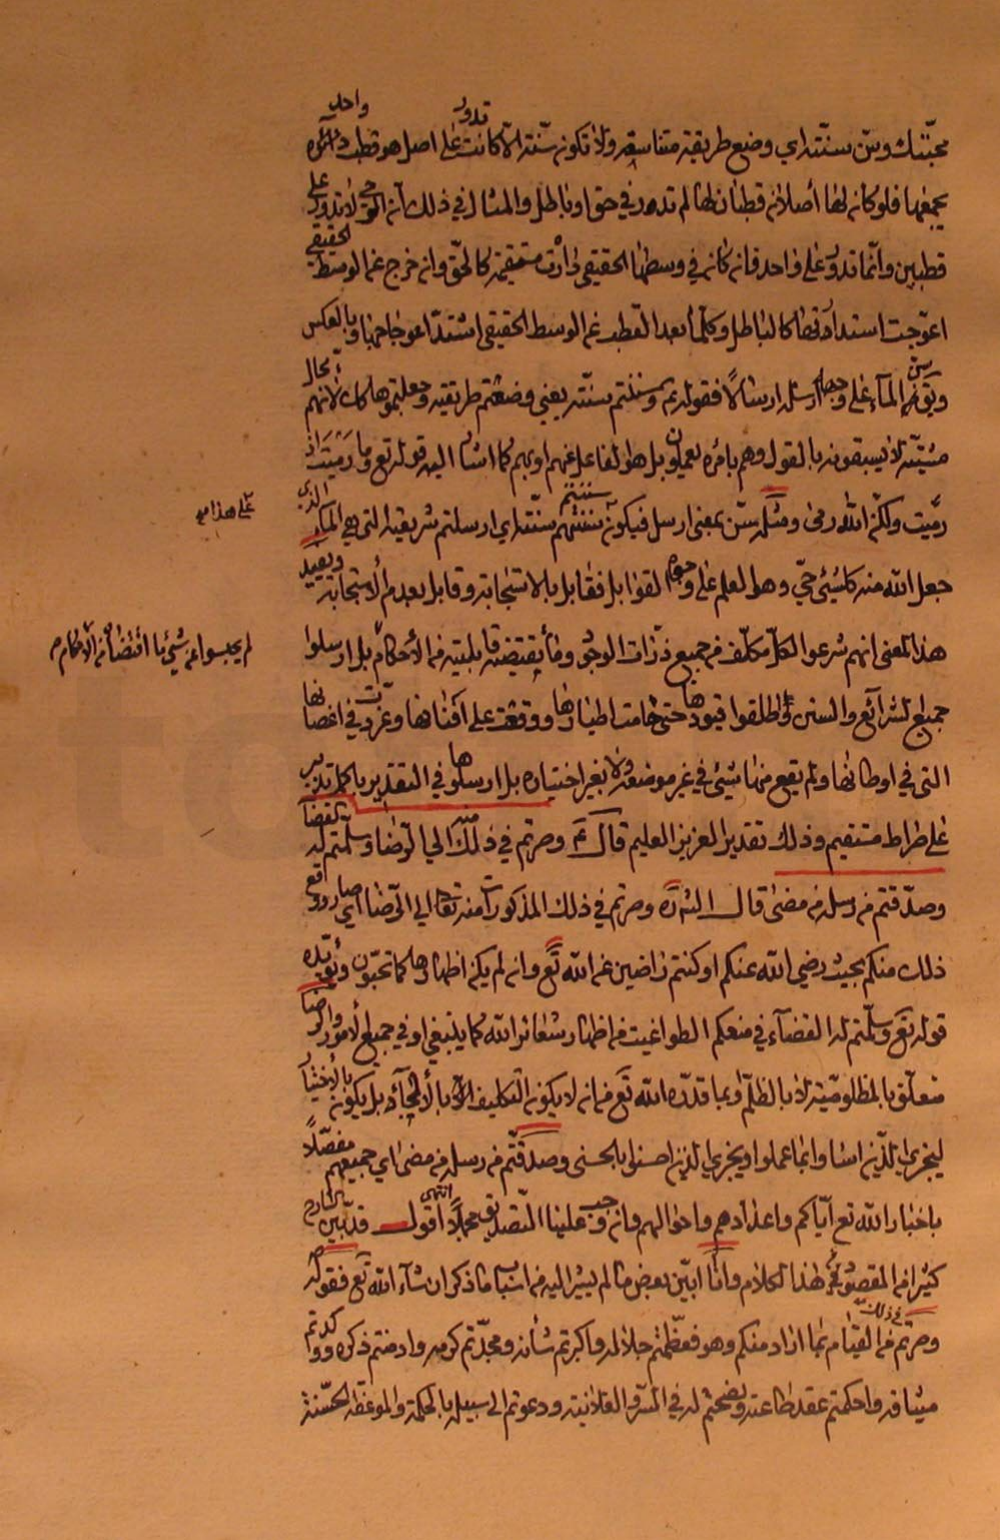 محبّتك وسنّ سنّته اي وضع طريقة متناسقة ولا تكون سنّته الّا كانت تدور على اصل واحد هو قطب دائرة
يجمعها فلو كان لها أصلان قطبان لها لم تدر في حق او باطل والمثال في ذلك أنّ الرحى لا تدور على
قطبين وأنّما تدور على واحد فان كان في وسطها الحقيقي دارت مستقيمة كالحقّ وان خرج عن الوسط الحقيقي
اعوجّت استدارتها كالباطل وكلّما بعد القطب عن الوسط الحقيقي اشتدّ اعوجاجها وبالعكس
وتقول سنّ المآء على وجهه ارسله ارسالاً فقوله وسننتم سنّته يعني وضعتم طريقته وجعلتموها كذلك لانهم محالّ
مشيّته لا يسبقونه بالقول وهم بأمره يعملون بل هو الفاعل عنهم او بهم كما اشار اليه قوله تع وما رميت اذ
رميت ولكنّ الله رمى ومثله سنّ بمعنى ارسل فيكون سننتم سنّته اي ارسلتم شريقته التي هي المآء الذي
جعل الله منه كلّ شيئ حيّ وهو العلم على وجوه القوابل فقابل بالاستجابة وقابل بعدم الاستجابة ويفيد
على هذا
هذا المعنى انهم شرعوا لكلّ مكلّف من جميع ذرّات الوجود ما يقتضيه قابليته من الأحكام بل ارسلوا
لم يحبسوا عن شيئ ما اقتضاه من الأحكام
جميع الشرآئع والسنن واطلقوا قيودها حتى قامت اطيارها ووقعت على افنانها وغرّدت في اغصانها
التي في اوطانها ولم يقع منها شيئ في غير موضعه ولا بغير اختياره بل ارسلوها في التقدير باكمل تدبير
على صراط مستقيم وذلك تقدير العزيز العليم قال ع وصرتم في ذلك منه الى الرّضا وسلّمتم له القضآء
وصدّقتم من رسله من مضى قال الشره وصرتم في ذلك المذكورات منه تعالى الى الرّضا اي صار وقع
ذلك منكم بحيث رضي الله عنكم او كنتم راضين عن الله تع وان لم يكن اظهارها كما تحبّون ويؤيّده
قوله تع وسلّمتم له القضآء في منعكم الطواغيت من اظهار شعائر الله كما ينبغي او في جميع الامور والرضا
متعلّق بالمظلوميّة لا بالظلم او بما قدّره الله تع من انه لا يكون التكليف الّا بالإلجآء بل يكون بالاختيار
ليجزي الذين اسآوا بما عملوا ويجزي الذين احسنوا بالحسنى وصدّقتم من رسله من مضى اي جميعهم مفصّلاً
باخبار الله تع ايّاكم واعدادهم واحوالهم وان وجب علينا التصديق مجملاً انتهى اقول قد بيّن الشارح
كثيرا من المقصود من هذا الكلام وانّا ابيّن بعض ما لم يشر اليه من اسباب ما ذكر ان شآء الله تع فقوله
وصرتم في ذلك من القيام بما اراد منكم وهو فعظّمتم جلاله واكبرتم شأنه ومجّدتم كرمه وادمنتم ذكره ووكّدتم
ميثاقه واحكمتم عقد طاعته ونصحتم له في السّر والعلانية ودعوتم الى سبيله بالحكمة والموعظة الحسنة